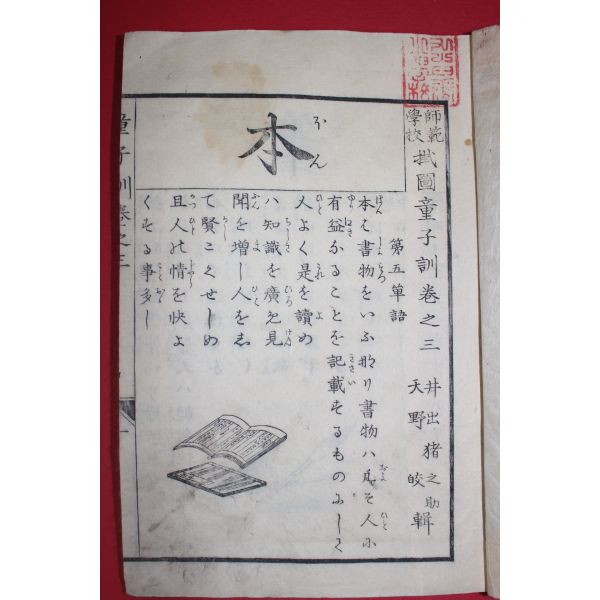 師範學校 掛圖童子訓卷之三
井出猪之助
天野皎 輯
第五單語
本
ほん
本は書物をいふ那り書物ハ凡そ人に
有益なることを記載するものにして
人よく是を讀め
ハ知識を廣免見
聞を増し人を志
て賢こくせしめ
且人の情を快よ
くする事多し
童子訓卷之三